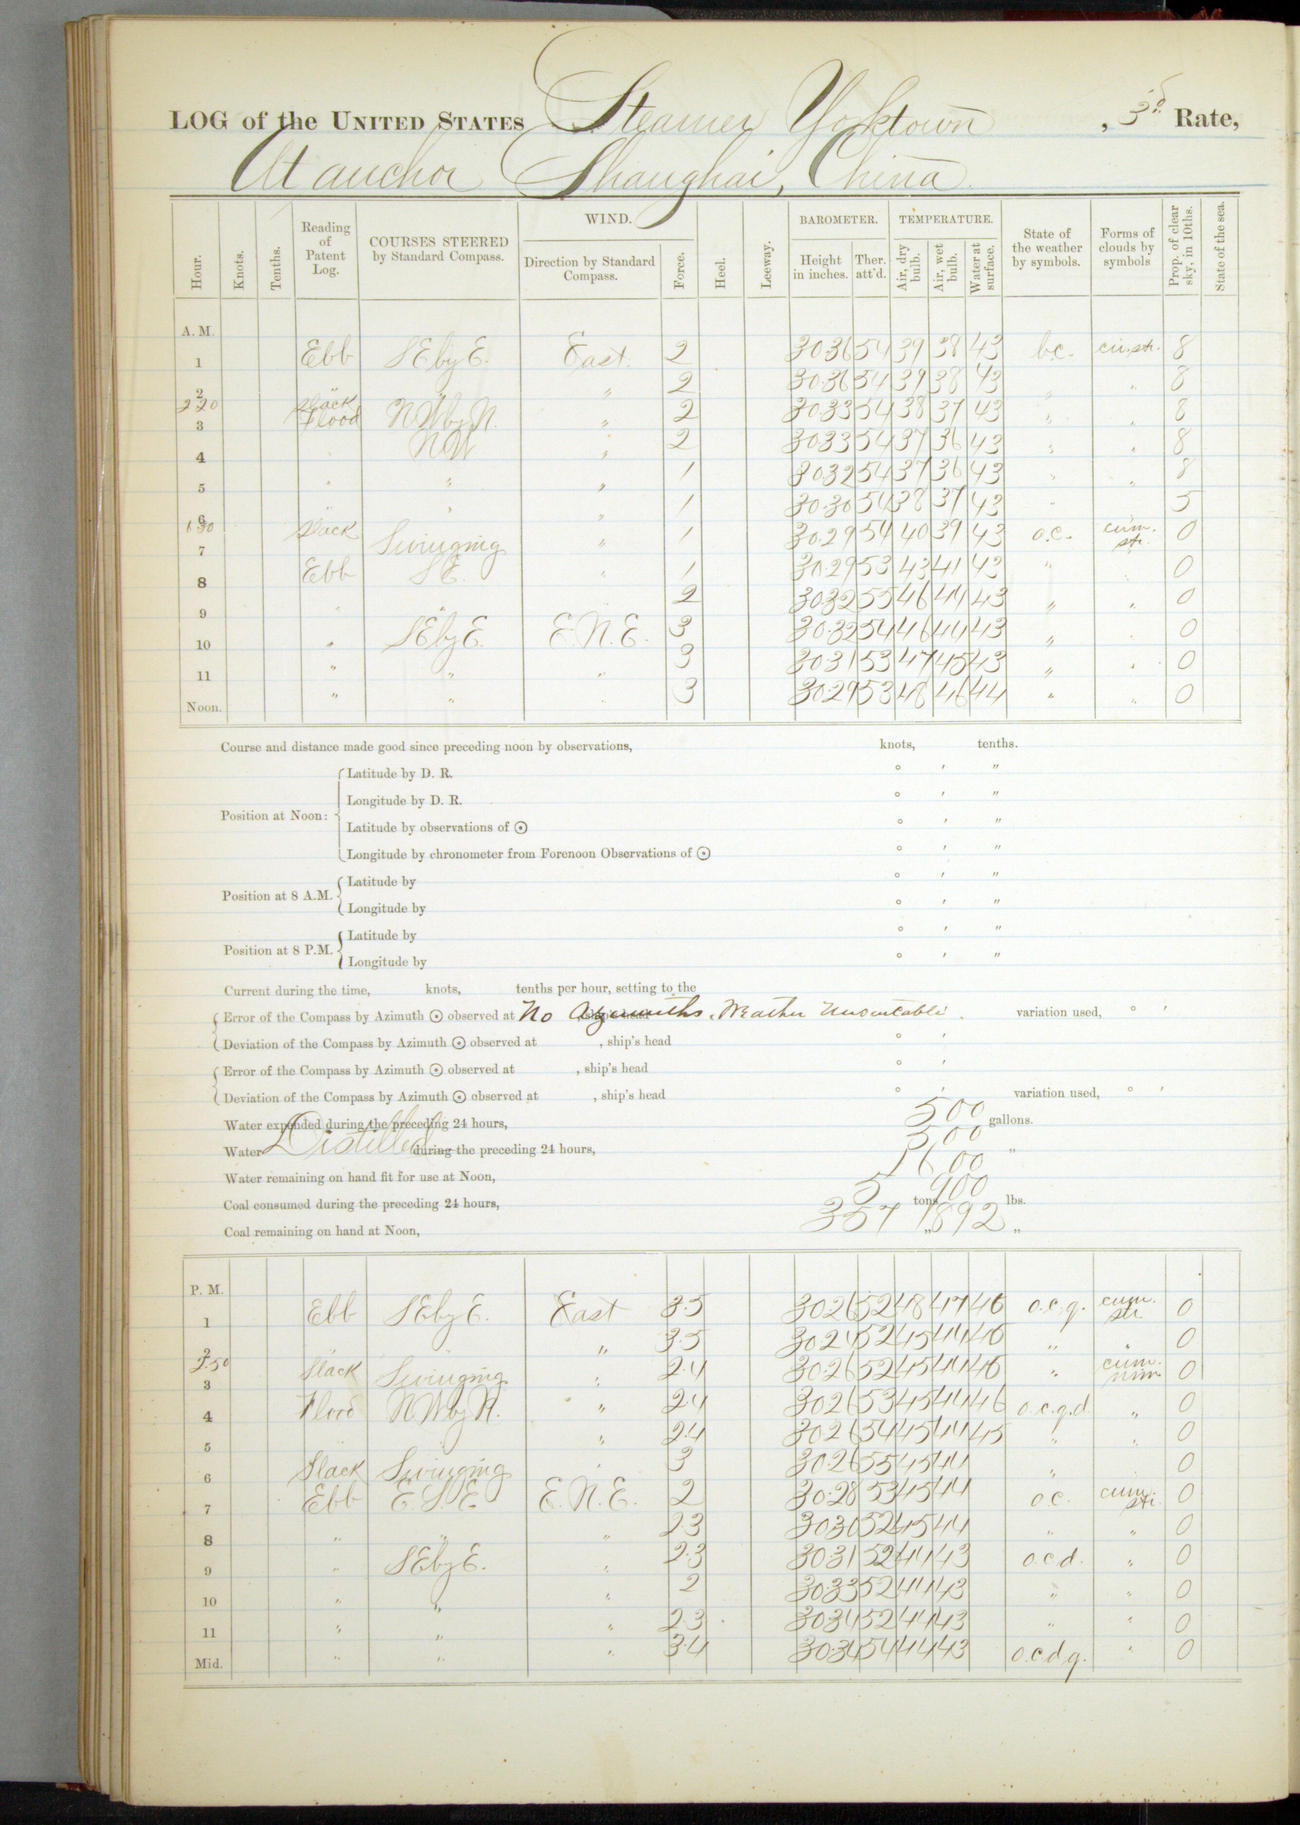 LOG of the UNITED STATES Steamer Yorktown, 3d Rate,
At anchor Shanghai, China.
Hour. Knots. Tenths. Reading of Patent Log. COURSES STEERED by Standard Compass. WIND. Direction by Standard Compass. Force. Heel. Leeway. BAROMETER. Height in inches. Ther. att'd. TEMPERATURE. Air, dry bulb. Air, wet bulb. Water at surface. State of the weather by symbols. Forms of clouds by symbols Prop. of clear sky, in 10ths. State of the sea.
A. M.
1 Ebb SE by E. East. 2 30.36 54 39 38 43 b.c. cir.str. 8
2 " " 2 30.36 54 39 38 43 " " 8
2 20 Slack
3 Flood NW by N. " 2 30.33 54 38 37 43 " " 8
4 " NW " 2 30.33 54 37 36 43 " " 8
5 " " " 1 30.32 54 37 36 43 " " 8
6 " " " 1 30.30 54 38 37 43 " 5
6 30 Slack
7 Swinging " 1 30.29 54 40 39 43 o.c. cum. str. 0
8 Ebb SE. " 1 30.29 53 43 41 43 " " 0
9 " " 2 30.32 55 46 44 43 " " 0
10 " SE by E. E.N.E. 3 30.32 54 46 44 43 " " 0
11 " " " 3 30.31 53 47 45 43 " " 0
Noon. " " " 3 30.29 53 48 46 44 " " 0
Course and distance made good since preceding noon by observations, knots, tenths.
Position at Noon: Latitude by D. R. ° ' "
Longitude by D. R. ° ' "
Latitude by observations of ⊙ ° ' "
Longitude by chronometer from Forenoon Observations of ⊙ ° ' "
Position at 8 A.M. Latitude by ° ' "
Longitude by ° ' "
Position at 8 P.M. Latitude by ° ' "
Longitude by ° ' "
Current during the time, knots, tenths per hour, setting to the
Error of the Compass by Azimuth ⊙ observed at No Azimuths. Weather Unsuitable. variation used, ° '
Deviation of the Compass by Azimuth ⊙ observed at , ship's head ° '
Error of the Compass by Azimuth ⊙ observed at , ship's head ° '
Deviation of the Compass by Azimuth ⊙ observed at , ship's head ° ' variation used, ° '
Water expended during the preceding 24 hours, 500 gallons.
Water Distilled during the preceding 24 hours, 500 "
Water remaining on hand fit for use at Noon, 1600
Coal consumed during the preceding 24 hours, 5 tons 900 lbs.
Coal remaining on hand at Noon, 357 " 1892 "
P. M.
1 Ebb SE by E. East 3.5 30.26 52 48 47 46 o.c.q. cum. str. 0
2 " 3.5 30.24 52 45 44 46 " " 0
2.50
3 Slack Swinging " 2.4 30.26 52 45 44 46 " cum. nim. 0
4 Flood NW by N. " 2.4 30.26 53 45 44 46 o.c.q.d " 0
5 " " " 2.4 30.26 54 45 44 45 " " 0
6 Slack Swinging " 3 30.26 55 45 44 " " 0
7 Ebb E.S.E E.N.E. 2 30.28 53 45 44 o.c. cum. str. 0
8 " " " 2.3 30.30 52 45 44 " " 0
9 " SE by E. " 2.3 30.31 52 44 43 o.c.d. " 0
10 " " " 2 30.33 52 44 43 " " 0
11 " " " 2.3 30.34 52 44 43 " " 0
Mid. " " " 3.4 30.34 54 44 43 o.c.d.q. " 0